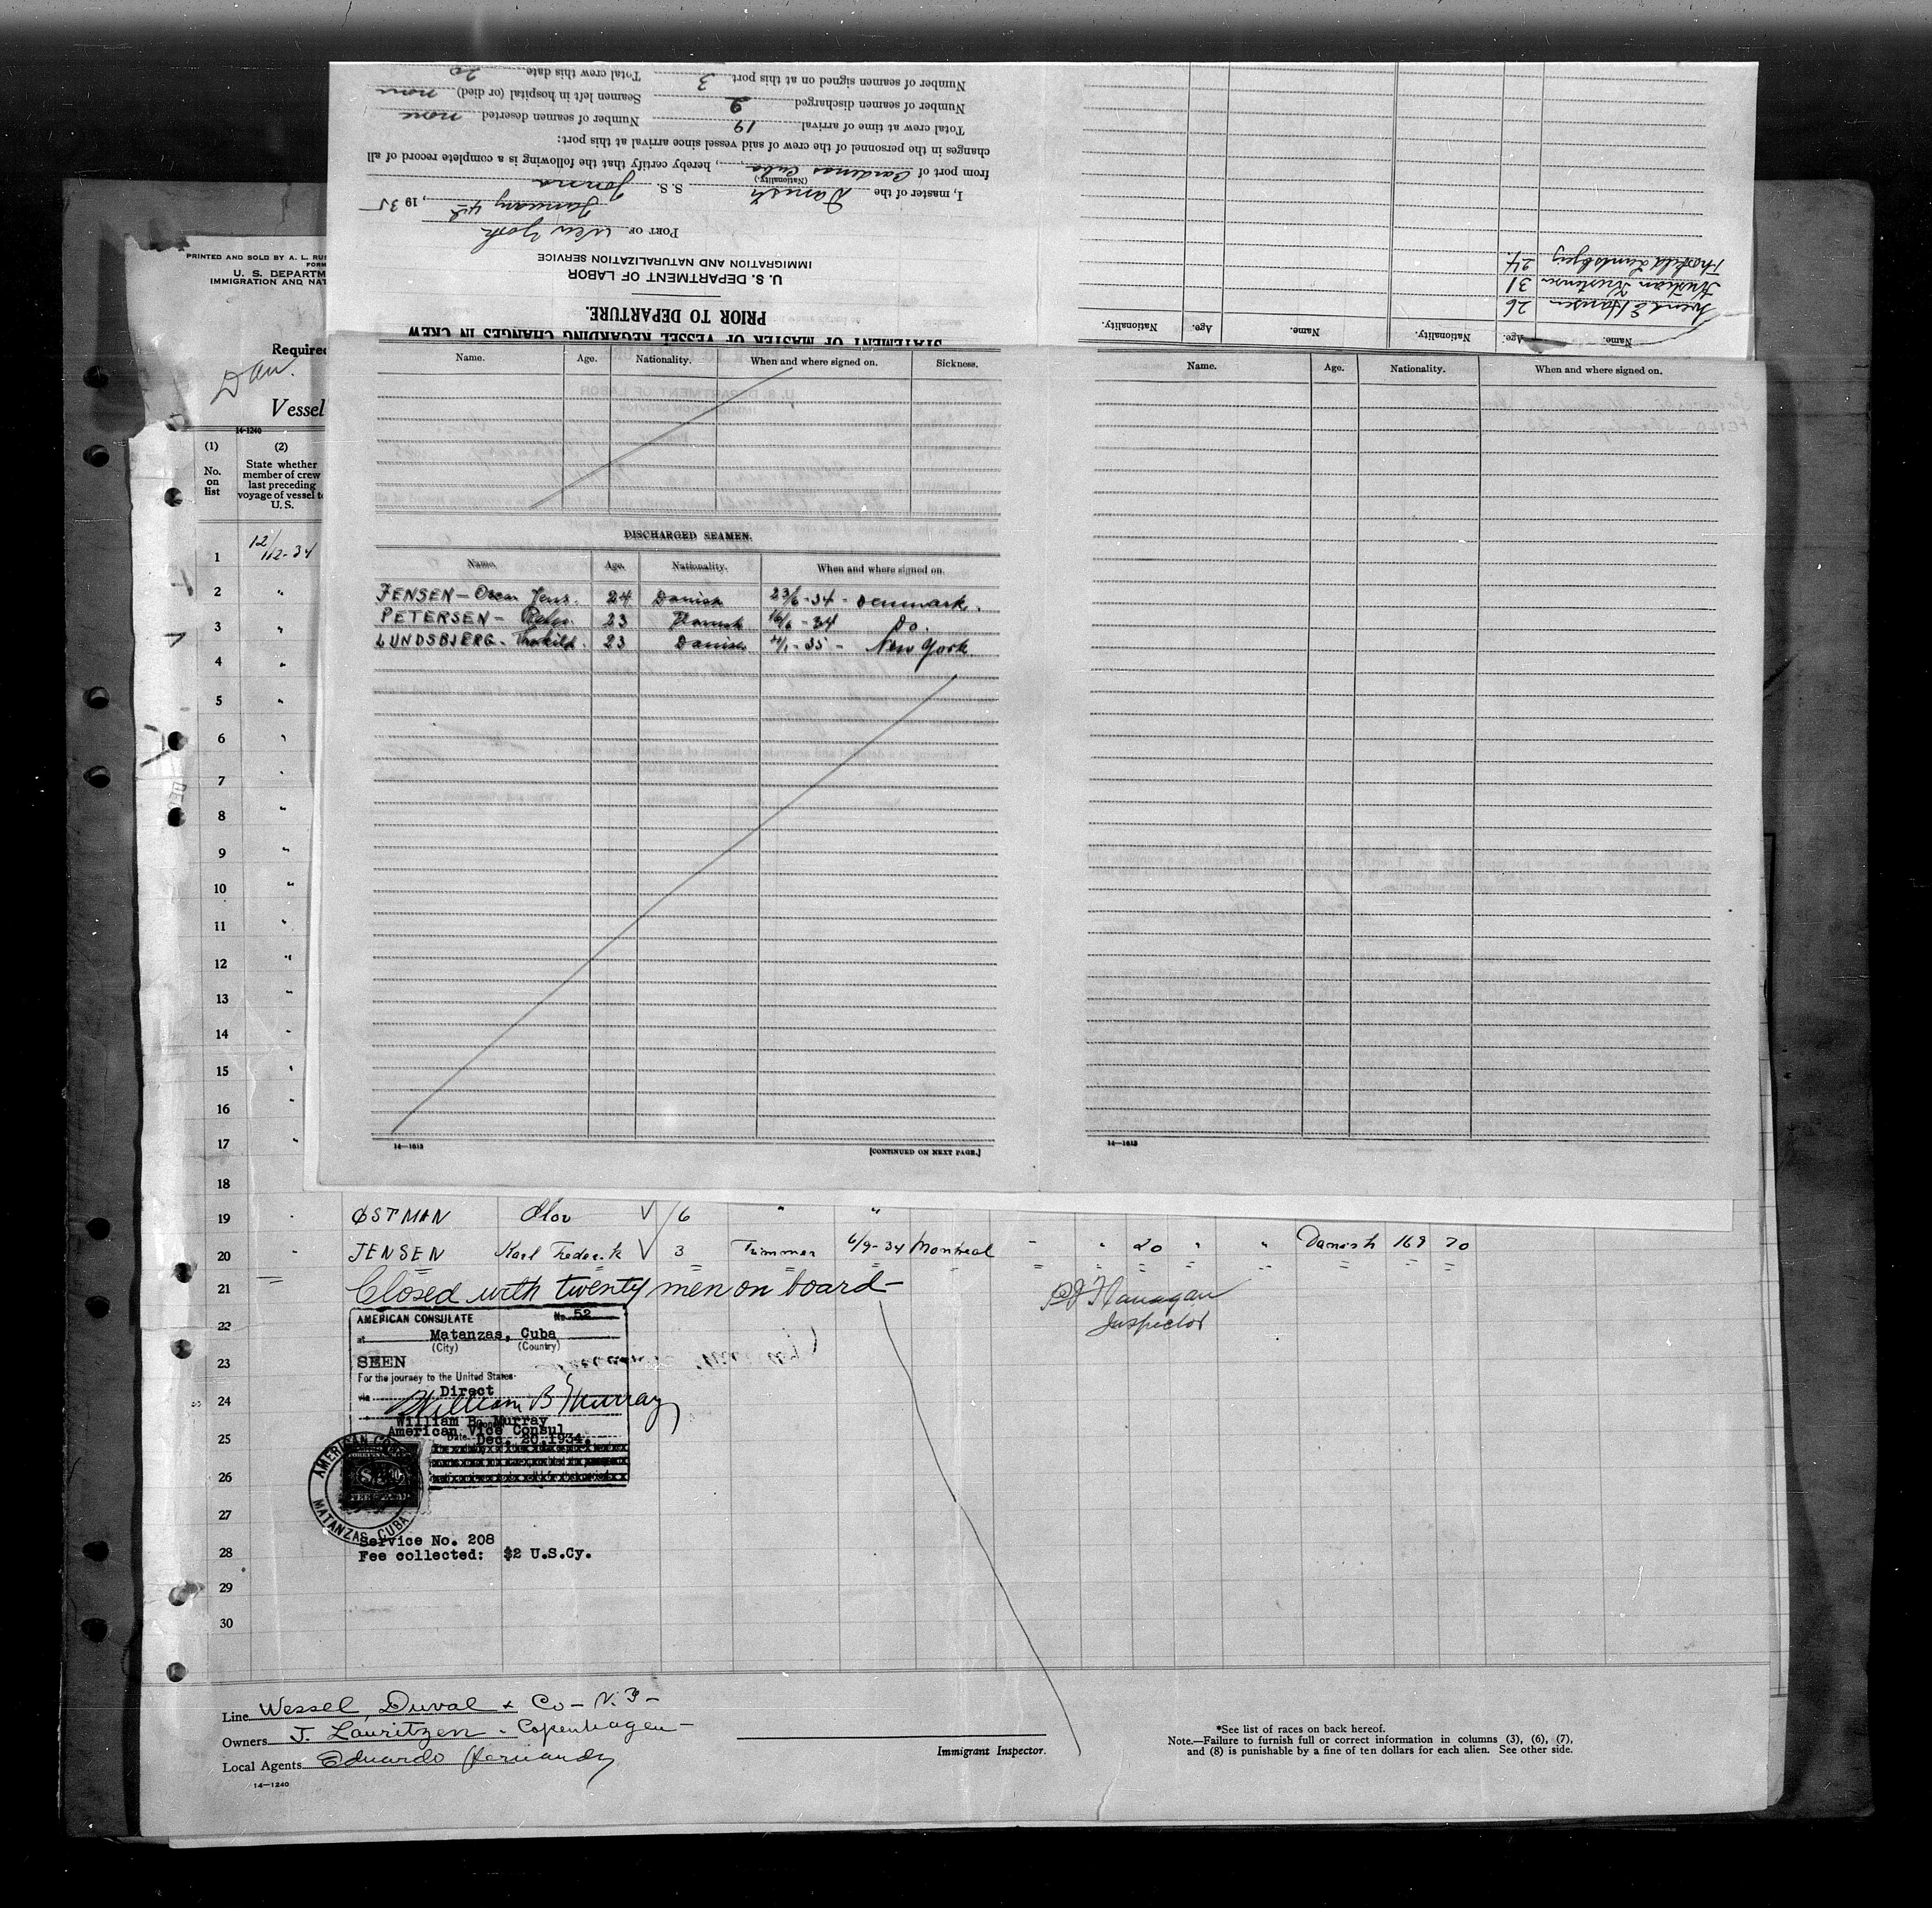 STATEMENT OF MASTER OF VESSEL REGARDING CHANGES IN CREW
PRIOR TO DEPARTURE.
U. S. DEPARTMENT OF LABOR
IMMIGRATION AND NATURALIZATION SERVICE
PORT OF New York
January 4th, 1935
I, master of the Danish S. S. Jonna
(Nationality.)
from port of Cardenas Cuba, hereby certify that the following is a complete record of all
changes in the personnel of the crew of said vessel since arrival at this port:
Total crew at time of arrival 19 Number of seamen deserted none
Number of seamen discharged 2 Seamen left in hospital (or died) none
Number of seamen signed on at this port 3 Total crew this date 20
Name. Age. Nationality. Name. Age. Nationality.
Svend E Hansen 26
Kristian Kristensen 31
Thorkild Lundsbjerg 24
PRINTED AND SOLD BY A. L. RUS
FORM
U. S. DEPARTM
IMMIGRATION AND NAT
Required
Dan.
Vessel
14-1240
(1) (2)
No. on list
State whether member of crew last preceding voyage of vessel to U. S.
Name. Age. Nationality. When and where signed on. Sickness.
Name. Age. Nationality. When and where signed on.
DISCHARGED SEAMEN.
Name. Age. Nationality. When and where signed on.
JENSEN - Oscar Jens. 24 Danish 23/6-34 - Denmark.
PETERSEN - 23 Danish 16/6-34 Do.
LUNDSBJERG - Thorkild. 23 Danish 4/1-35 - New York
14—1613
[CONTINUED ON NEXT PAGE.]
14—1613
1 12/12-34
2 "
3 "
4 "
5 "
6 "
7 "
8 "
9 "
10 "
11 "
12 "
13 "
14 "
15 "
16 "
17 "
18
19 " ØSTMAN Olov V 16 " "
20 " JENSEN Karl Frederik V 3 Trimmer 6/9-34 Montreal - " 20 " " Danish 169 70
21 Closed with twenty men on board - Flanagan
Inspector
22
23
24
25
26
27
28
29
30
AMERICAN CONSULATE No. 52
at Matanzas, Cuba
(City) (Country)
SEEN
For the journey to the United States
via Direct
William B Murray
William B. Murray
American Vice Consul
Date Dec. 20, 1934.
AMERICAN CONSULATE
MATANZAS, CUBA
Service No. 208
Fee collected: $2 U.S.Cy.
Line Wessel, Duval & Co - N.Y -
Owners J. Lauritzen - Copenhagen -
Local Agents Eduardo Hernandez
14—1240
Immigrant Inspector.
*See list of races on back hereof.
Note.—Failure to furnish full or correct information in columns (3), (6), (7),
and (8) is punishable by a fine of ten dollars for each alien. See other side.